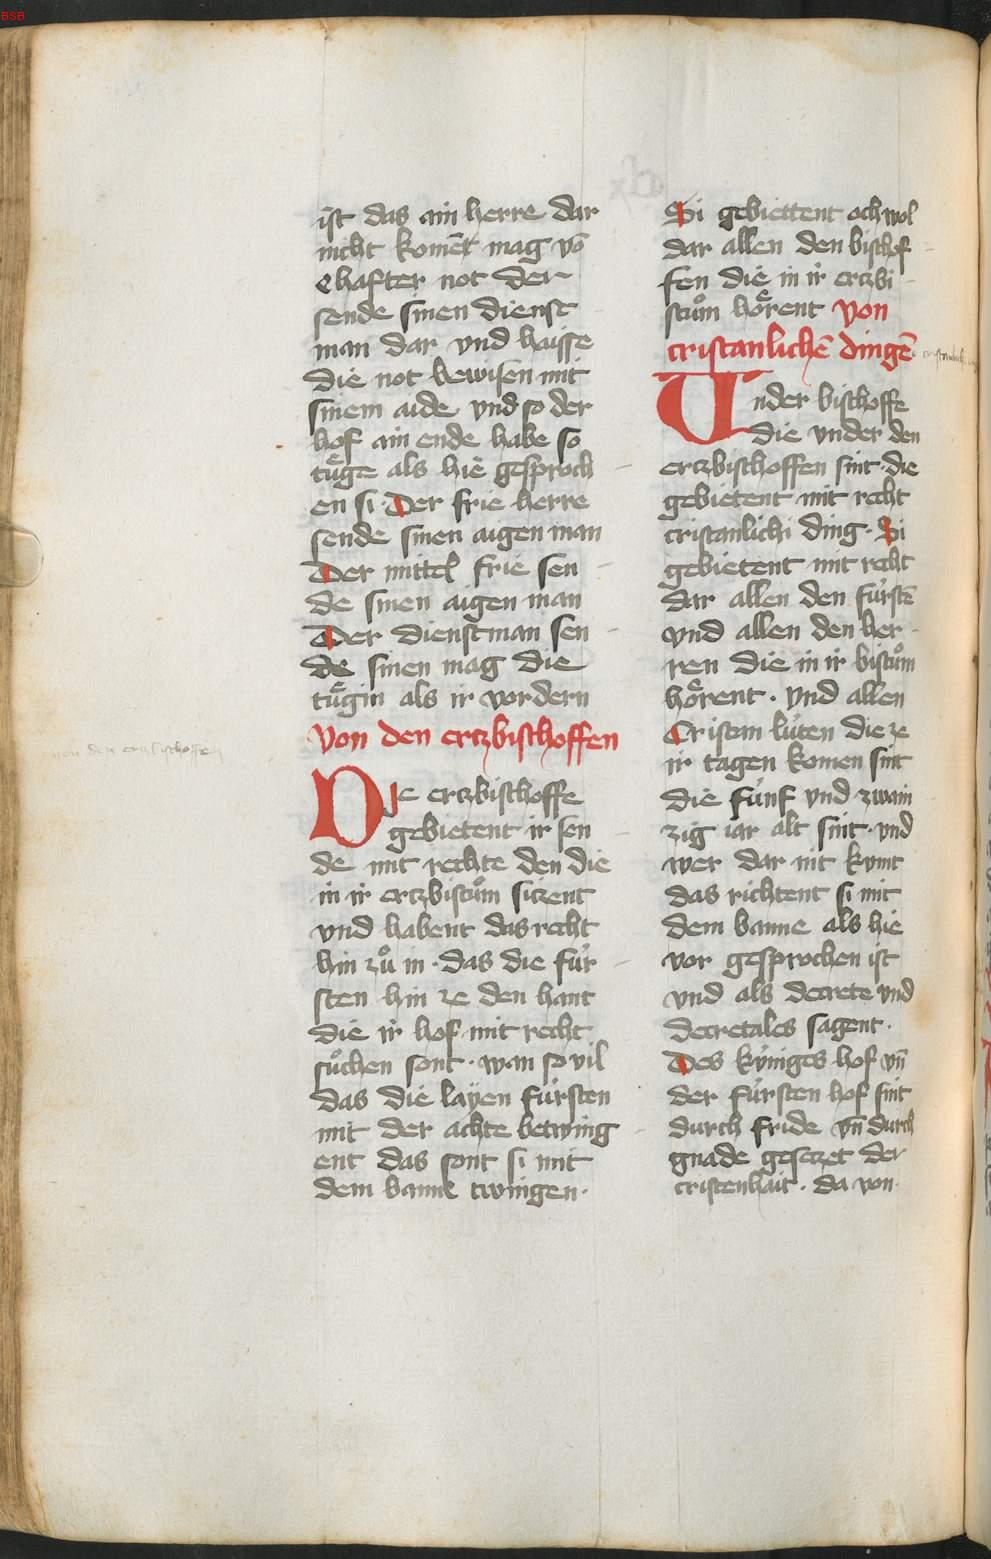 BSB
ist das ain herre dar
nicht komēt mag vō
ehafter not der
sende sinen dienst
man dar vnd haisse
die not bewisen mit
sinem aide vnd so der
hof ain ende habe so
tuͤge als hie gesproch
en si · Der frie herre
sende sinen aigen man
Der mittel frie sen
de sinen aigen man
Der dienstman sen
de sinen mag die
tuͤgin als ir vordern
von den ertzbischoffen
DIe ertzbischoffe
gebietent ir sen
de mit rechte den die
in ir ertzbistuͦm sitzent
vnd habent das recht
hin zuͦ in · das die fúr
sten hin ze den hant
die ir hof mit recht
suͦchen sont · wan so vil
das die layen fúrsten
mit der achte betwing
ent das sont si mit
dem banne twingen ·
Si gebiettent och wol
dar allen den bischof
fen die in ir ertzbi
stuͦm hoͤrent von
cristanlichē dingē
Vnder bischoffe
die vnder den
ertzbischoffen sint · die
gebietent mit recht
cristanlichi ding · Si
gebietent mit recht
dar allen den fúrstē
vnd allen den her
ren die in ir bistuͦm
hoͤrent · vnd allen
Cristan lúten die ze
ir tagen komen sint
die fúnf vnd zwain
zig iar alt sint · vnd
wer dar nit kymt
das richtent si mit
dem banne als hie
vor gesprochen ist
vnd als decrete vnd
decretales sagent ·
Des kyniges hof vn̄
der fúrsten hof sint
durch fride vn̄ durch
gnade gesetzet der
cristenhait · da von
von den ertzbischoffen